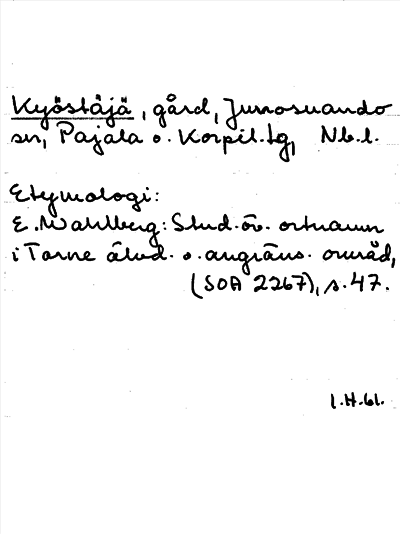 Kyöstäjä, gård, Junosuando
sn, Pajala o. Korpil. tg, Nb. l.
Etymologi:
E. Wahlberg: Stud. öv. ortnamn
i Torne älvd. o. angräns. område,
(SOA 2267), s. 47.
I.H.61.